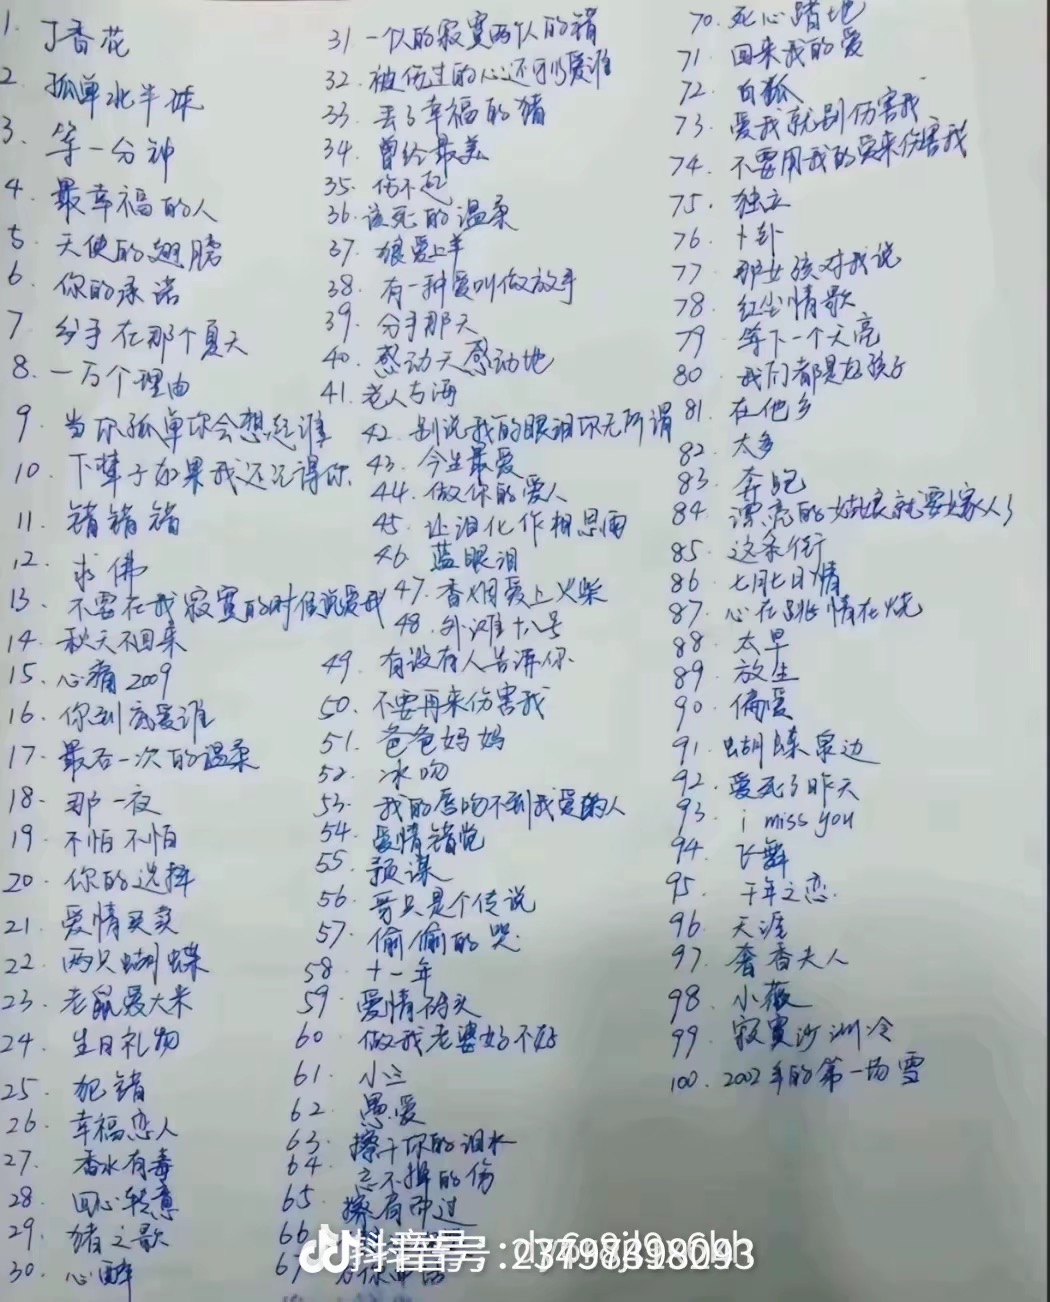 1. 丁香花
2 孤单北半球
3. 等一分钟
4. 最幸福的人
5 天使的翅膀
6 你的承诺
7 分手在那个夏天
8. 一万个理由
9 当你孤单你会想起谁
10 下辈子如果我还记得你
11 错错错
12 求佛
13 不要在我寂寞的时候说爱我
14 秋天不回来
15. 心痛2009
16 你到底爱谁
17 最后一次的温柔
18 那一夜
19 不怕不怕
20 你的选择
21 爱情买卖
22 两只蝴蝶
23. 老鼠爱大米
24 生日礼物
25 犯错
26 幸福恋人
27. 香水有毒
28 回心转意
29. 猪之歌
30. 心醉
31 一个人的寂寞两个人的错
32. 被伤过的心还可以爱谁
33. 丢了幸福的猪
34. 曾经最美
35. 伤不起
36. 该死的温柔
37. 狼爱上羊
38. 有一种爱叫做放手
39. 分手那天
40. 感动天感动地
41. 老人与海
42. 别说我的眼泪你无所谓
43. 今生最爱
44. 做你的爱人
45. 让泪化作相思雨
46. 蓝眼泪
47. 香烟爱上火柴
48. 外滩十八号
49 有没有人告诉你
50. 不要再来伤害我
51. 爸爸妈妈
52. 冰吻
53. 我的唇吻不到我爱的人
54. 爱情错觉
55. 预谋
56 哥只是个传说
57. 偷偷的哭
58 十一年
59 爱情码头
60 做我老婆好不好
61. 小三
62 愚爱
63. 擦干你的泪水
64 忘不掉的伤
65 擦肩而过
66
67
70. 死心踏地
71 回来我的爱
72 白狐
73 爱我就别伤害我
74. 不要用我的爱来伤害我
75. 独立
76 卜卦
77 那女孩对我说
78 红尘情歌
79 等下一个天亮
80 我们都是好孩子
81. 在他乡
82 太多
83. 奔跑
84 漂亮的姑娘就要嫁人了
85. 这条街
86 七月七日情
87. 心在跳情在烧
88 太早
89 放生
90 偏爱
91 蝴蝶泉边
92 爱死了昨天
93 i miss you
94 飞舞
95. 千年之恋
96 天涯
97. 奢香夫人
98. 小薇
99 寂寞沙洲冷
100. 2002年的第一场雪
抖音号: